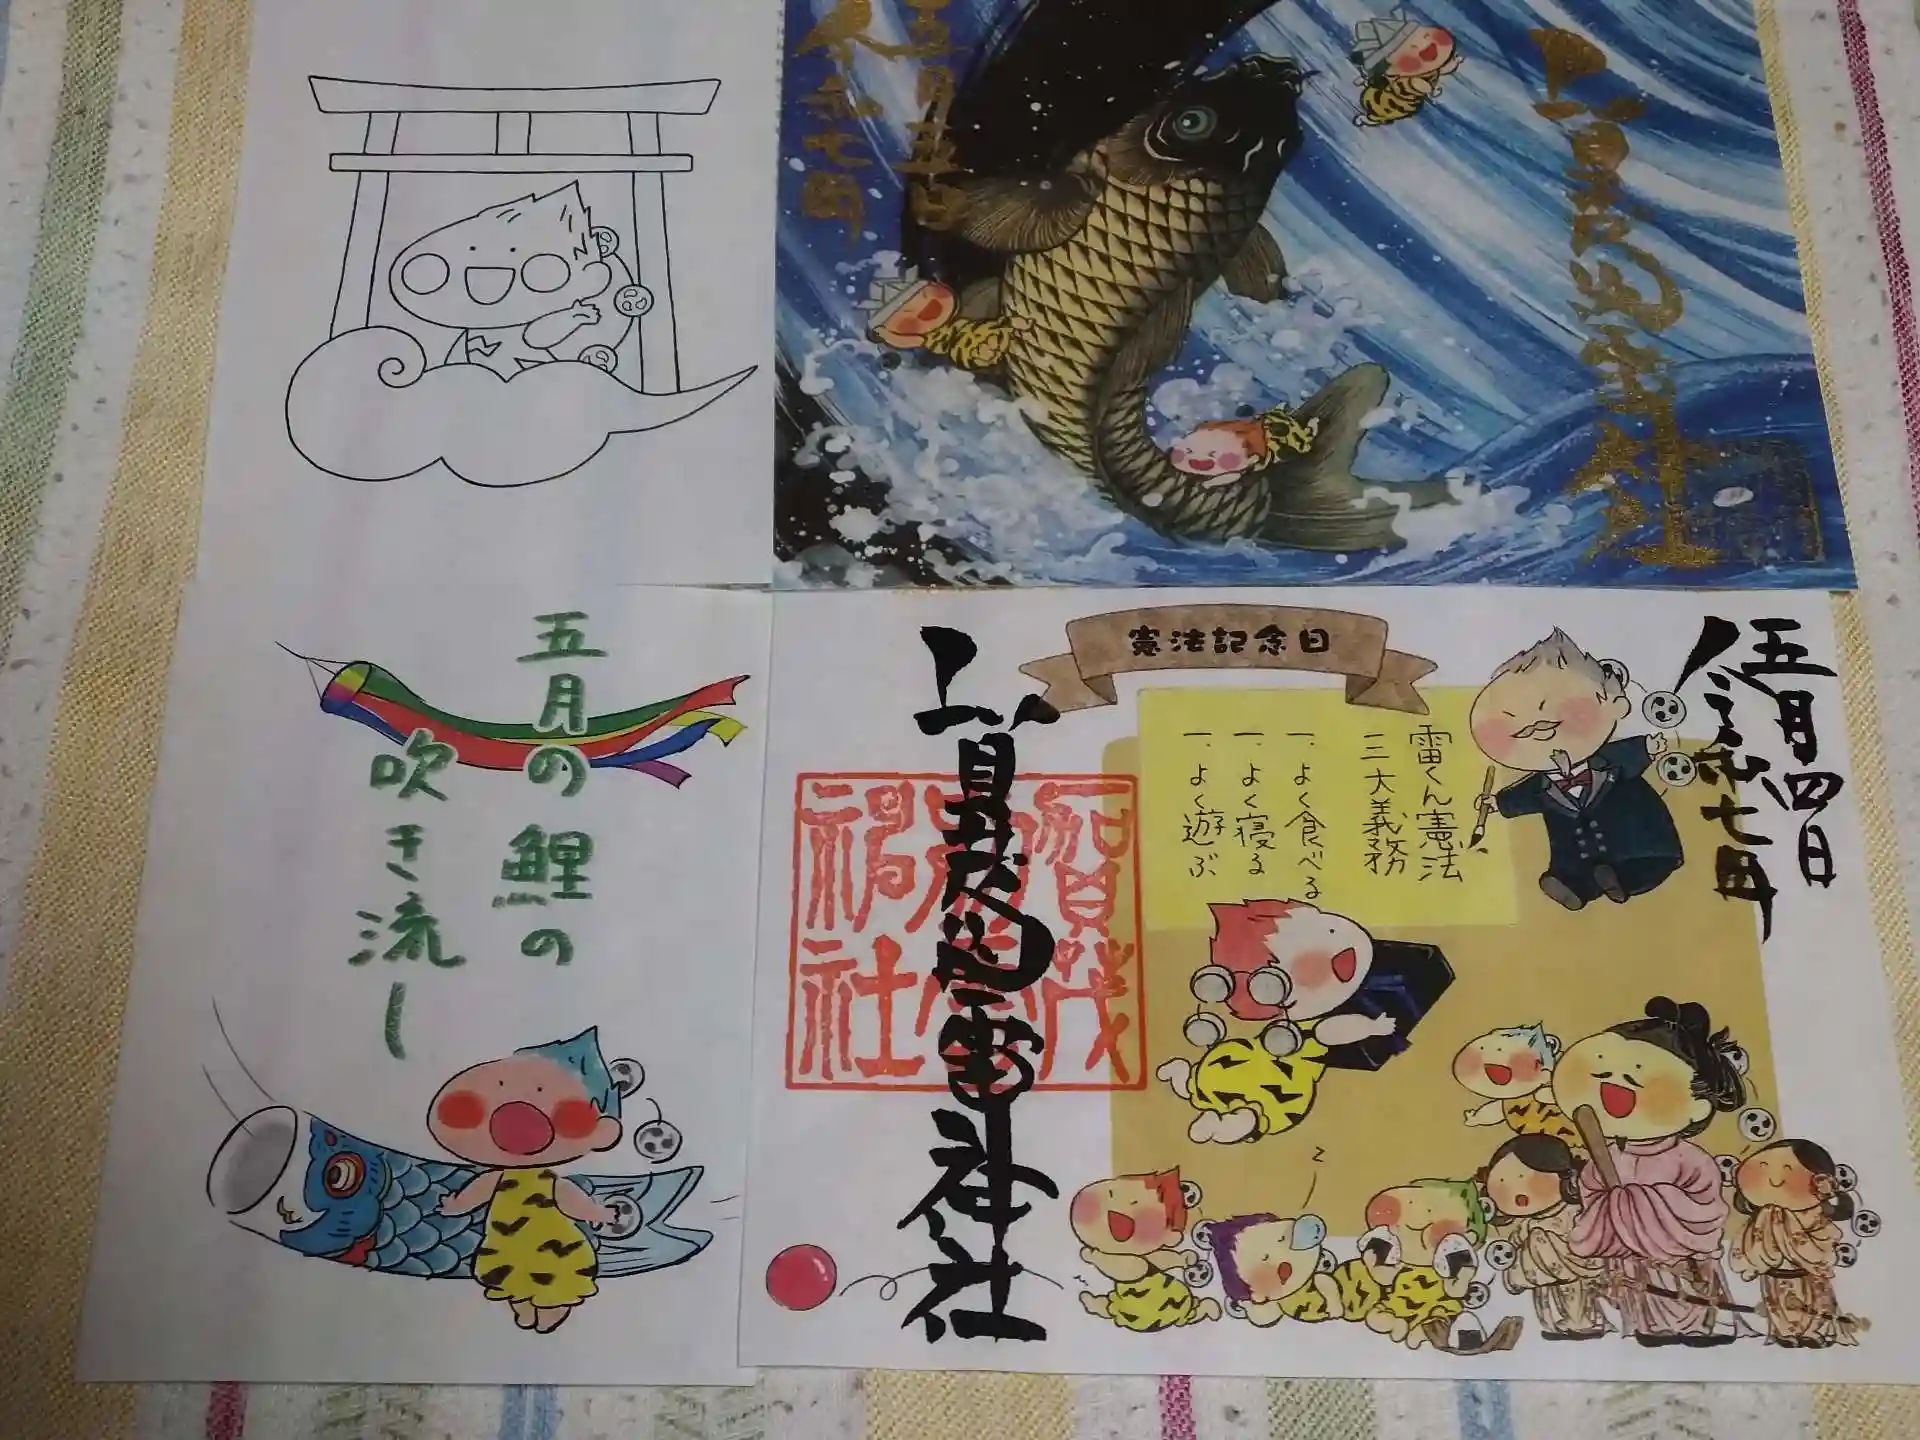 五月五日
令和七年
賀茂別雷神社
五月の鯉の
吹き流し
憲法記念日
五月四日
令和七年
雷くん憲法
三大義務
一、よく食べる
一、よく寝る
一、よく遊ぶ
賀茂別雷神社
賀茂
別雷
神社
z